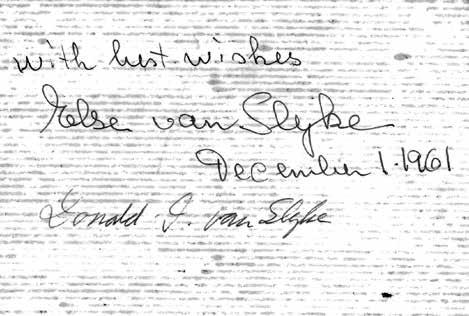 with best wishes
Else van Slyke
December 1·1961
Donald D. van Slyke